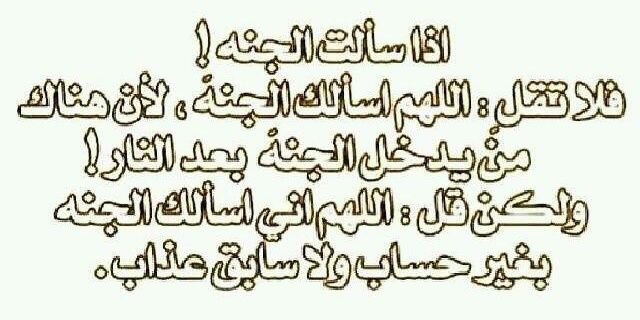 اذا سألت الجنه !
فلا تقل : اللهم اسألك الجنهَ ، لأن هناك
منَ يدخل الجنهَ بعد النار !
ولكن قل : اللهم اني اسألك الجنه
بغير حساب ولا سابق عذاب .